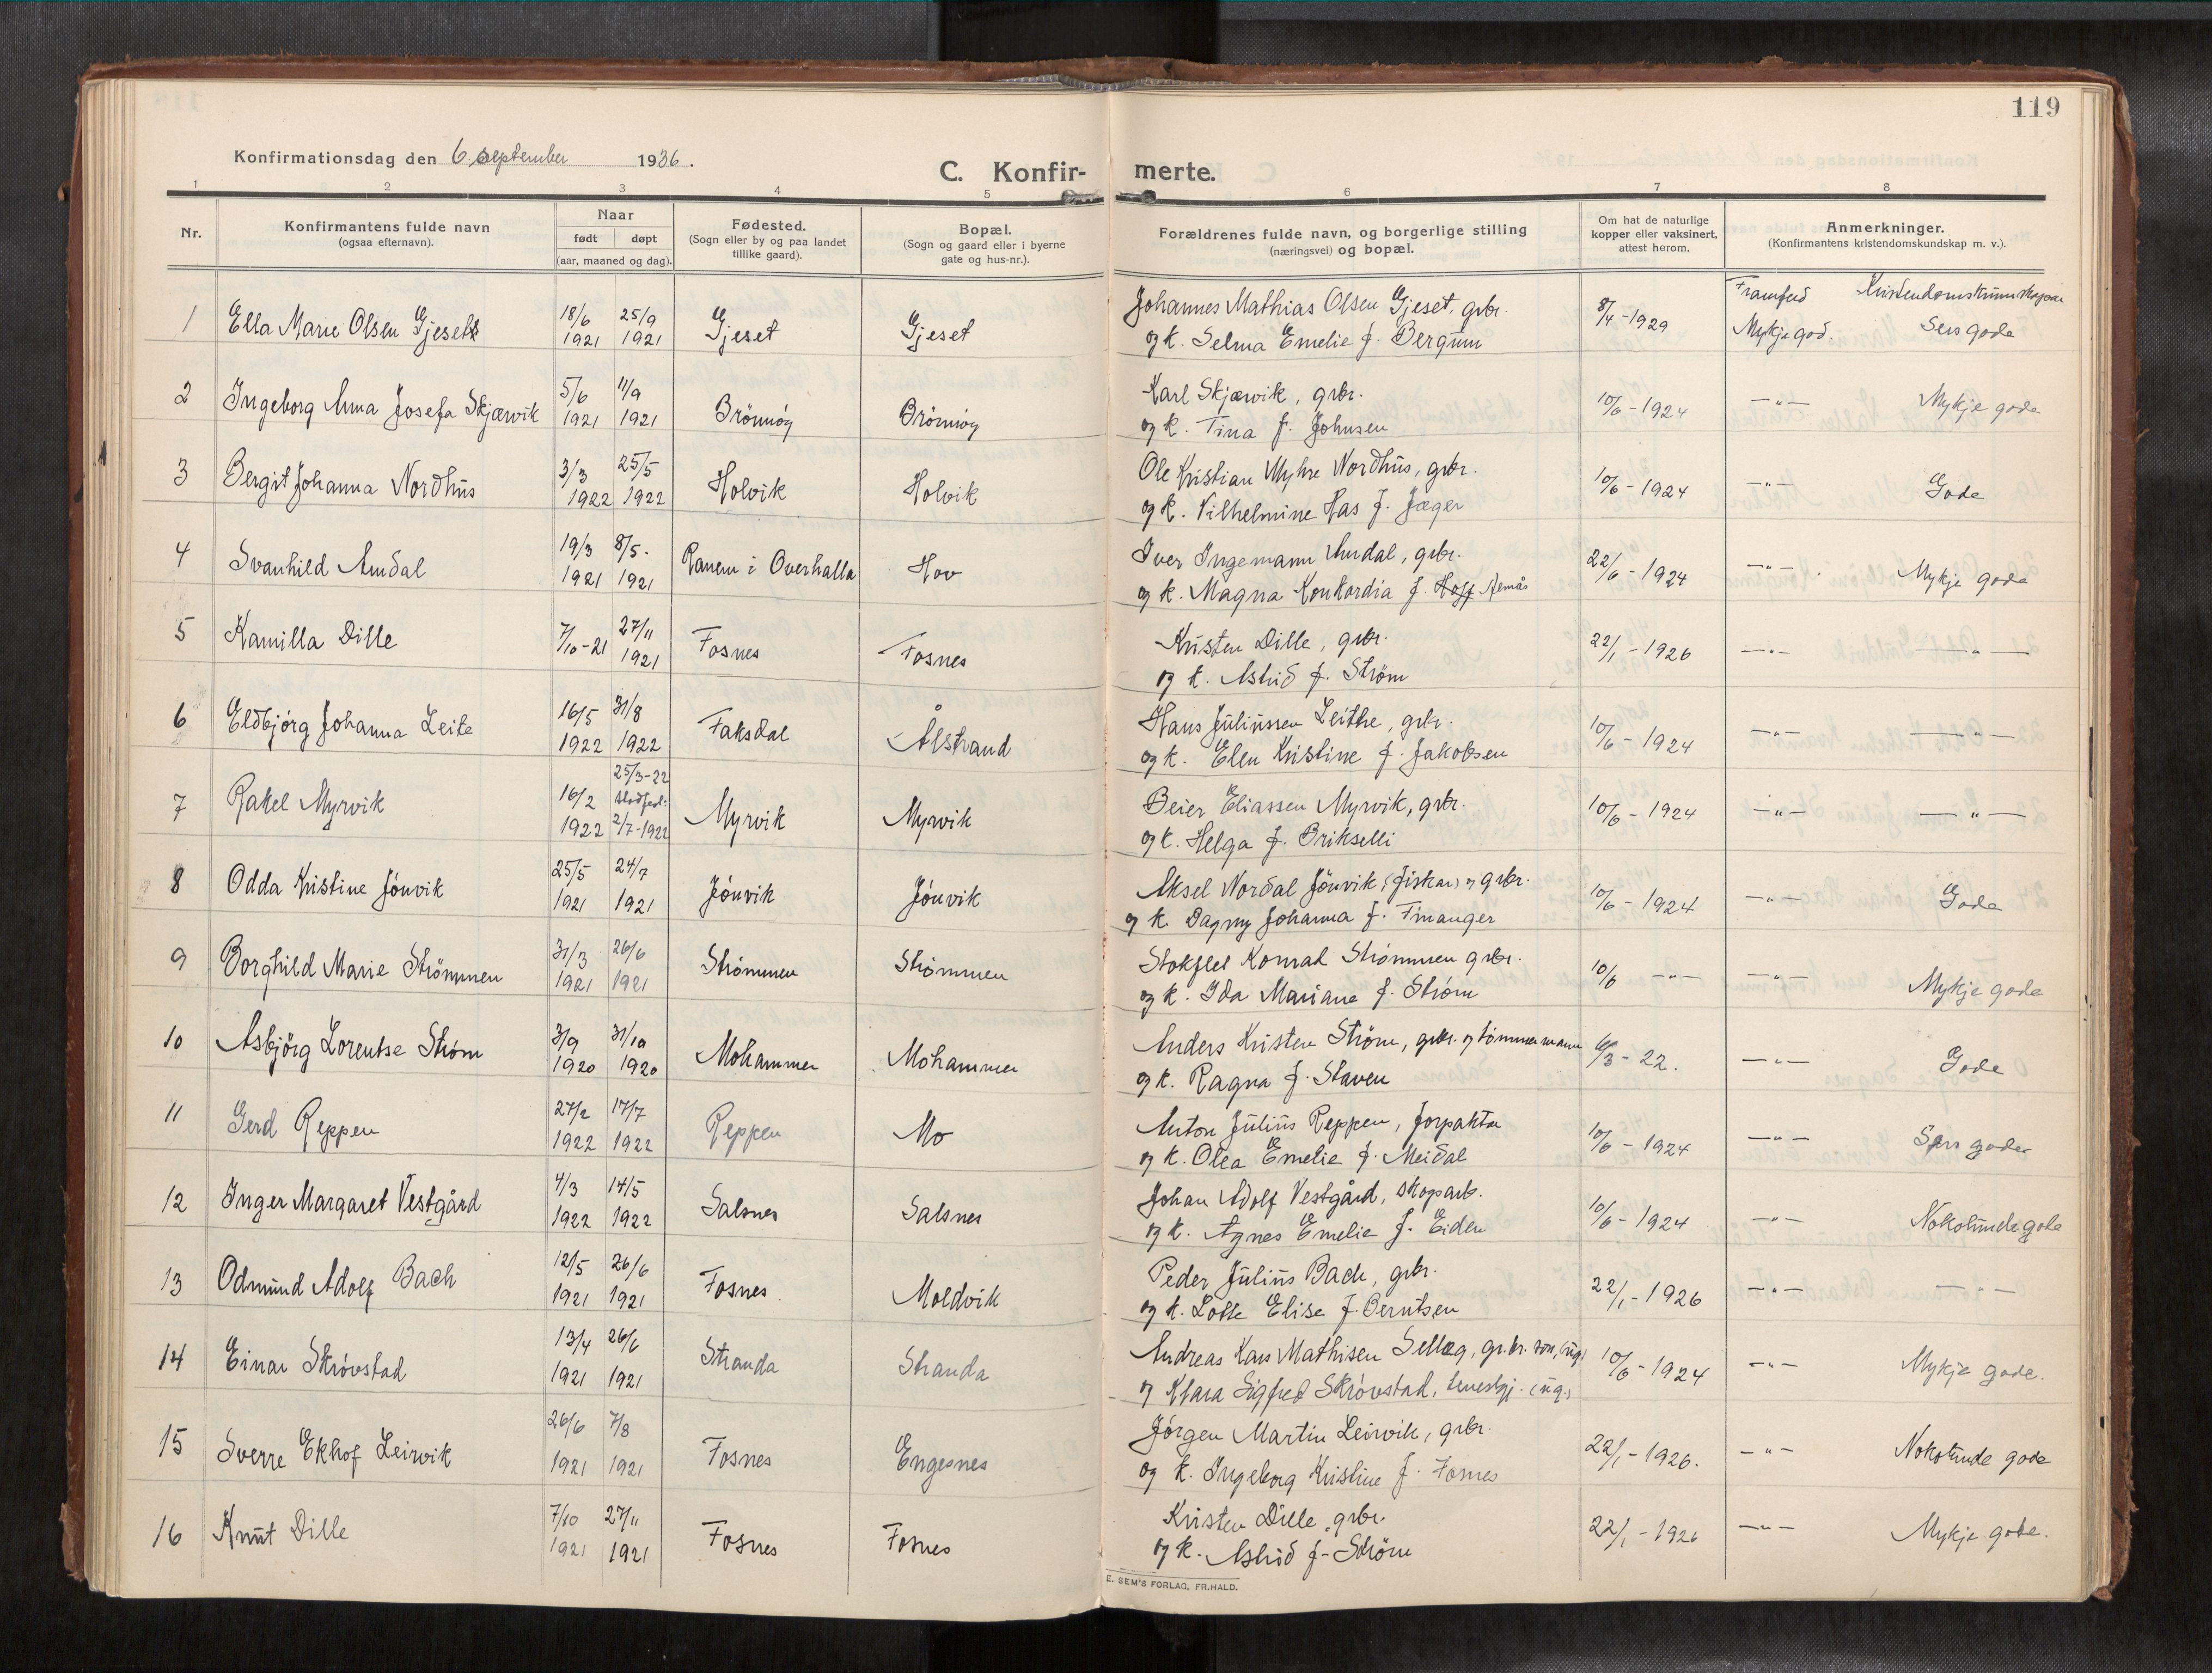 119
Konfirmationsdag den 6. september 1936.
C. Konfir-
merte.
1 2 3 4 5 6 7 8
Nr.
Konfirmantens fulde navn
(ogsaa efternavn).
Naar
født døpt
(aar, maaned og dag).
Fødested.
(Sogn eller by og paa landet
tillike gaard).
Bopæl.
(Sogn og gaard eller i byerne
gate og hus-nr.).
Forældrenes fulde navn, og borgerlige stilling
(næringsvei) og bopæl.
Om hat de naturlige
kopper eller vaksinert,
attest herom.
Anmerkninger.
(Konfirmantens kristendomskundskap m. v.).
1 Ella Marie Olsen Gjeset 18/6 1921 25/9 1921 Gjeset Gjeset
Johannes Mathias Olsen Gjeset, grbr.
og k. Selma Emelie f. Bergum
8/4 - 1929 Framferd Mykje god. Kristendomskunnskapar Sers gode
2 Ingeborg Anna Josefa Skjærvik 5/6 1921 11/9 1921 Brönnöy Brönnöy
Karl Skjærvik, grbr.
og k. Tina f. Johnsen
10/6 - 1924 —"— Mykje gode
3 Bergit Johanna Nordhus 3/3 1922 25/5 1922 Holvik Holvik
Ole Kristian Myhre Nordhus, grbr.
og k. Vilhelmine Has f. Jæger
10/6 - 1924 —"— Gode
4 Svanhild Amdal 19/3 1921 8/5. 1921 Ranem i Overhalla Hov
Iver Ingemann Amdal, grbr.
og k. Magna Konkordia f. Hoff Aemås
22/6 - 1924 —"— Mykje gode
5 Kamilla Dille 7/10-21 27/11 1921 Fosnes Fosnes
Kristen Dille, grbr.
og k. Astrid f. Strøm
22/1 - 1926 —"— —"—
6 Eldbjörg Johanna Leite 16/5 1922 31/8 1922 Faksdal Ålstrand
Hans Juliussen Leithe, grbr.
og k. Elen Kristine f. Jakobsen
10/6 - 1924 —"— —"—
7 Rakel Myrvik 16/2 1922 25/3-22 stadfest: 2/7-1922 Myrvik Myrvik
Beier Eliassen Myrvik, grbr.
og k. Helga f. Brikselli
10/6 - 1924 —"— —"—
8 Odda Kristine Jönvik 25/5 1921 24/7 1921 Jönvik Jönvik
Aksel Nordal Jönvik, (fiskar) og grbr.
og k. Dagny Johanna f. Finanger
10/6 - 1924 —"— Gode
9 Borghild Marie Strömmen 31/3 1921 26/6 1921 Strömmen Strömmen
Stokflet Konrad Strömmen grbr.
og k. Ida Mariane f. Ström
10/6 —"— —"— Mykje gode
10 Asbjörg Lorentse Ström 3/9 1920 31/10 1920 Mohammer Mohammer
Anders Kristen Ström, grbr. og tömmermann
og k. Ragna f. Staven
/3 - 22. —"— Gode
11 Gerd Reppen 27/2 1922 17/7 1922 Reppen Mo
Anton Julius Reppen, forpaktar
og k. Olea Emelie f. Meidal
10/6 - 1924 —"— Sers gode
12 Inger Margaret Vestgård 4/3 1922 14/5 1922 Salsnes Salsnes
Johan Adolf Vestgård, skogsarb.
og k. Agnes Emelie f. Eiden
10/6 - 1924 —"— Nokolunde gode
13 Odmund Adolf Bach 12/5 1921 26/6 1921 Fosnes Moldvik
Peder Julius Bach, grbr.
og k. Lotte Elise f. Berntsen
22/1 - 1926 —"— —"—
14 Einar Skrövstad 13/4 1921 26/6 1921 Stranda Stranda
Andreas Hans Mathisen Sellæg, gr.br. son, (ug.)
og Klara Sigfred Skrövstad, tenestgj. (ug.)
10/6 - 1924 —"— Mykje gode.
15 Sverre Ekhof Leirvik 26/6 1921 7/8 1921 Fosnes Engesnes
Jørgen Martin Leirvik, grbr.
og k. Ingeborg Kristine f. Fosnes
22/1 - 1926. —"— Nokolunde gode
16 Knut Dille 7/10 1921 27/11 1921 Fosnes Fosnes
Kristen Dille, grbr.
og k. Astrid f. Ström
22/1 - 1926 —"— Mykje gode.
E. SEM'S FORLAG, FR.HALD.